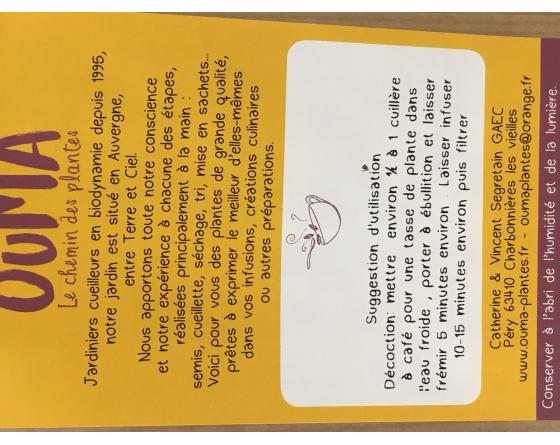 OUMA
Le chemin des plantes
Jardiniers cueilleurs en biodynamie depuis 1995,
notre jardin est situé en Auvergne,
entre Terre et Ciel.
Nous apportons toute notre conscience
et notre expérience à chacune des étapes,
réalisées principalement à la main :
semis, cueillette, séchage, tri, mise en sachets...
Voici pour vous des plantes de grande qualité,
prêtes à exprimer le meilleur d'elles-mêmes
dans vos infusions, créations culinaires
ou autres préparations.
Suggestion d'utilisation
Décoction: mettre environ ¾ à 1 cuillère
à café pour une tasse de plante dans
l'eau froide , porter à ébullition et laisser
frémir 5 minutes environ . Laisser infuser
10-15 minutes environ puis filtrer
Catherine & Vincent Segretain GAEC
Péry 63410 Charbonnières les vieilles
www.ouma-plantes.fr - oumaplantes@orange.fr
Conserver à l'abri de l'humidité et de la lumière.